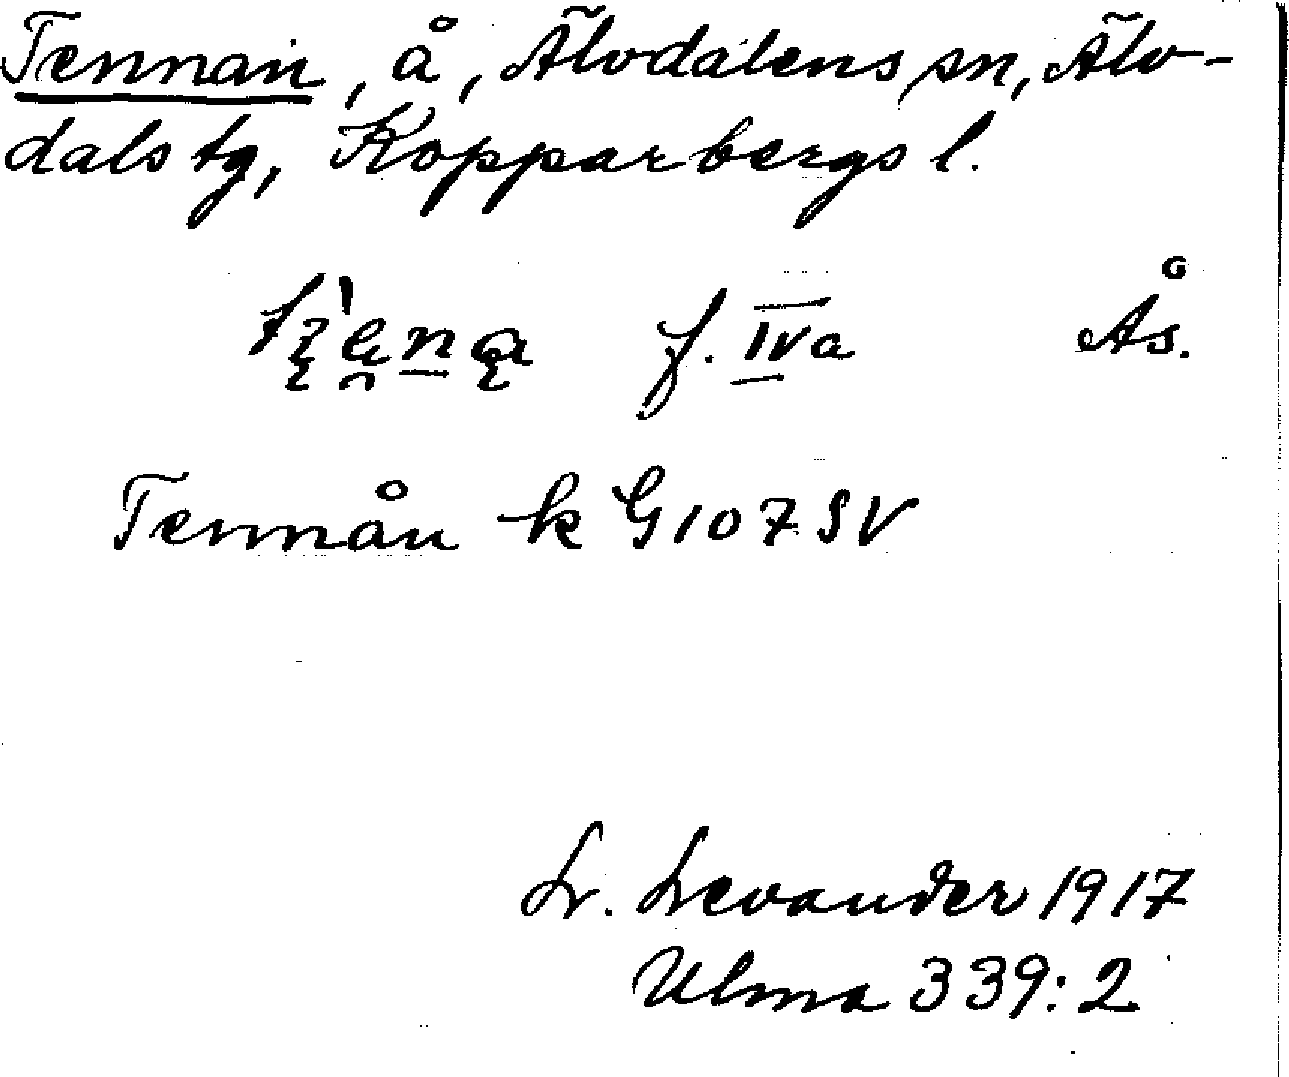 Tennan, å, Älvdalens sn, Älv-
dals tg, Kopparbergs l.
f. IVa Ås.
Tennån k G 107 SV
L. Levander 1917
Ulma 339:2